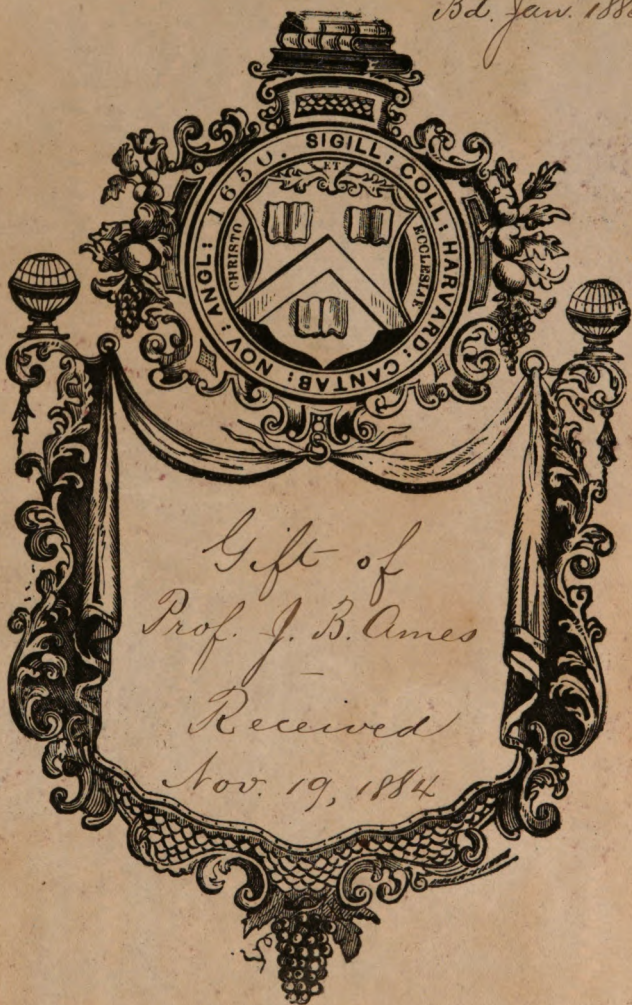 Bd. Jan. 188
SIGILL: COLL: HARVARD: CANTAB: NOV: ANGL: 1650.
CHRISTO
ET
ECCLESIAE
Gift of
Prof. J. B. Ames
—
Received
Nov. 19, 1884